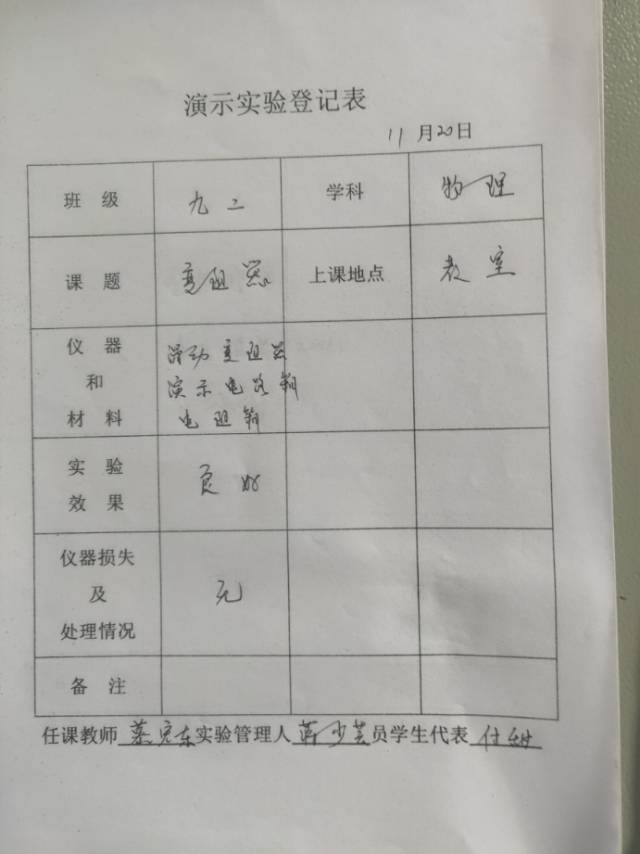 演示实验登记表
11月20日
班 级 九二 学科 物理
课 题 变阻器 上课地点 教室
仪 器
和
材 料
滑动变阻器
演示电路箱
电阻箱
实 验
效 果
良好
仪器损失
及
处理情况
无
备 注
任课教师 东实验管理人 少芸员学生代表